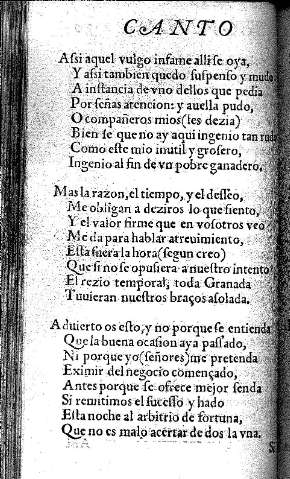 CANTO
Assi aquel vulgo infame alli se oya,
Y assi tambien quedo suspenso y mudo
A instancia de vno dellos que pedia
Por señas atencion: y auella pudo,
O compañeros mios (les dezia)
Bien se que no ay aqui ingenio tan rudo
Como este mio inutil y grosero,
Ingenio al fin de vn pobre ganadero.
Mas la razon, el tiempo, y el desseo,
Me obligan a deziros lo que siento,
Y el valor firme que en vosotros veo
Me da para hablar atreuimiento,
Esta fuera la hora (segun creo)
Que si no se opusiera a nuestro intento
El rezio temporal, toda Granada
Tuuieran nuestros braços asolada.
Aduierto os esto, y no porque se entienda
Que la buena ocasion aya passado,
Ni porque yo (señores) me pretenda
Eximir del negocio començado,
Antes porque se ofrece mejor senda
Si remitimos el sucesso y hado
Esta noche al arbitrio de fortuna,
Que no es malo acertar de dos la vna.